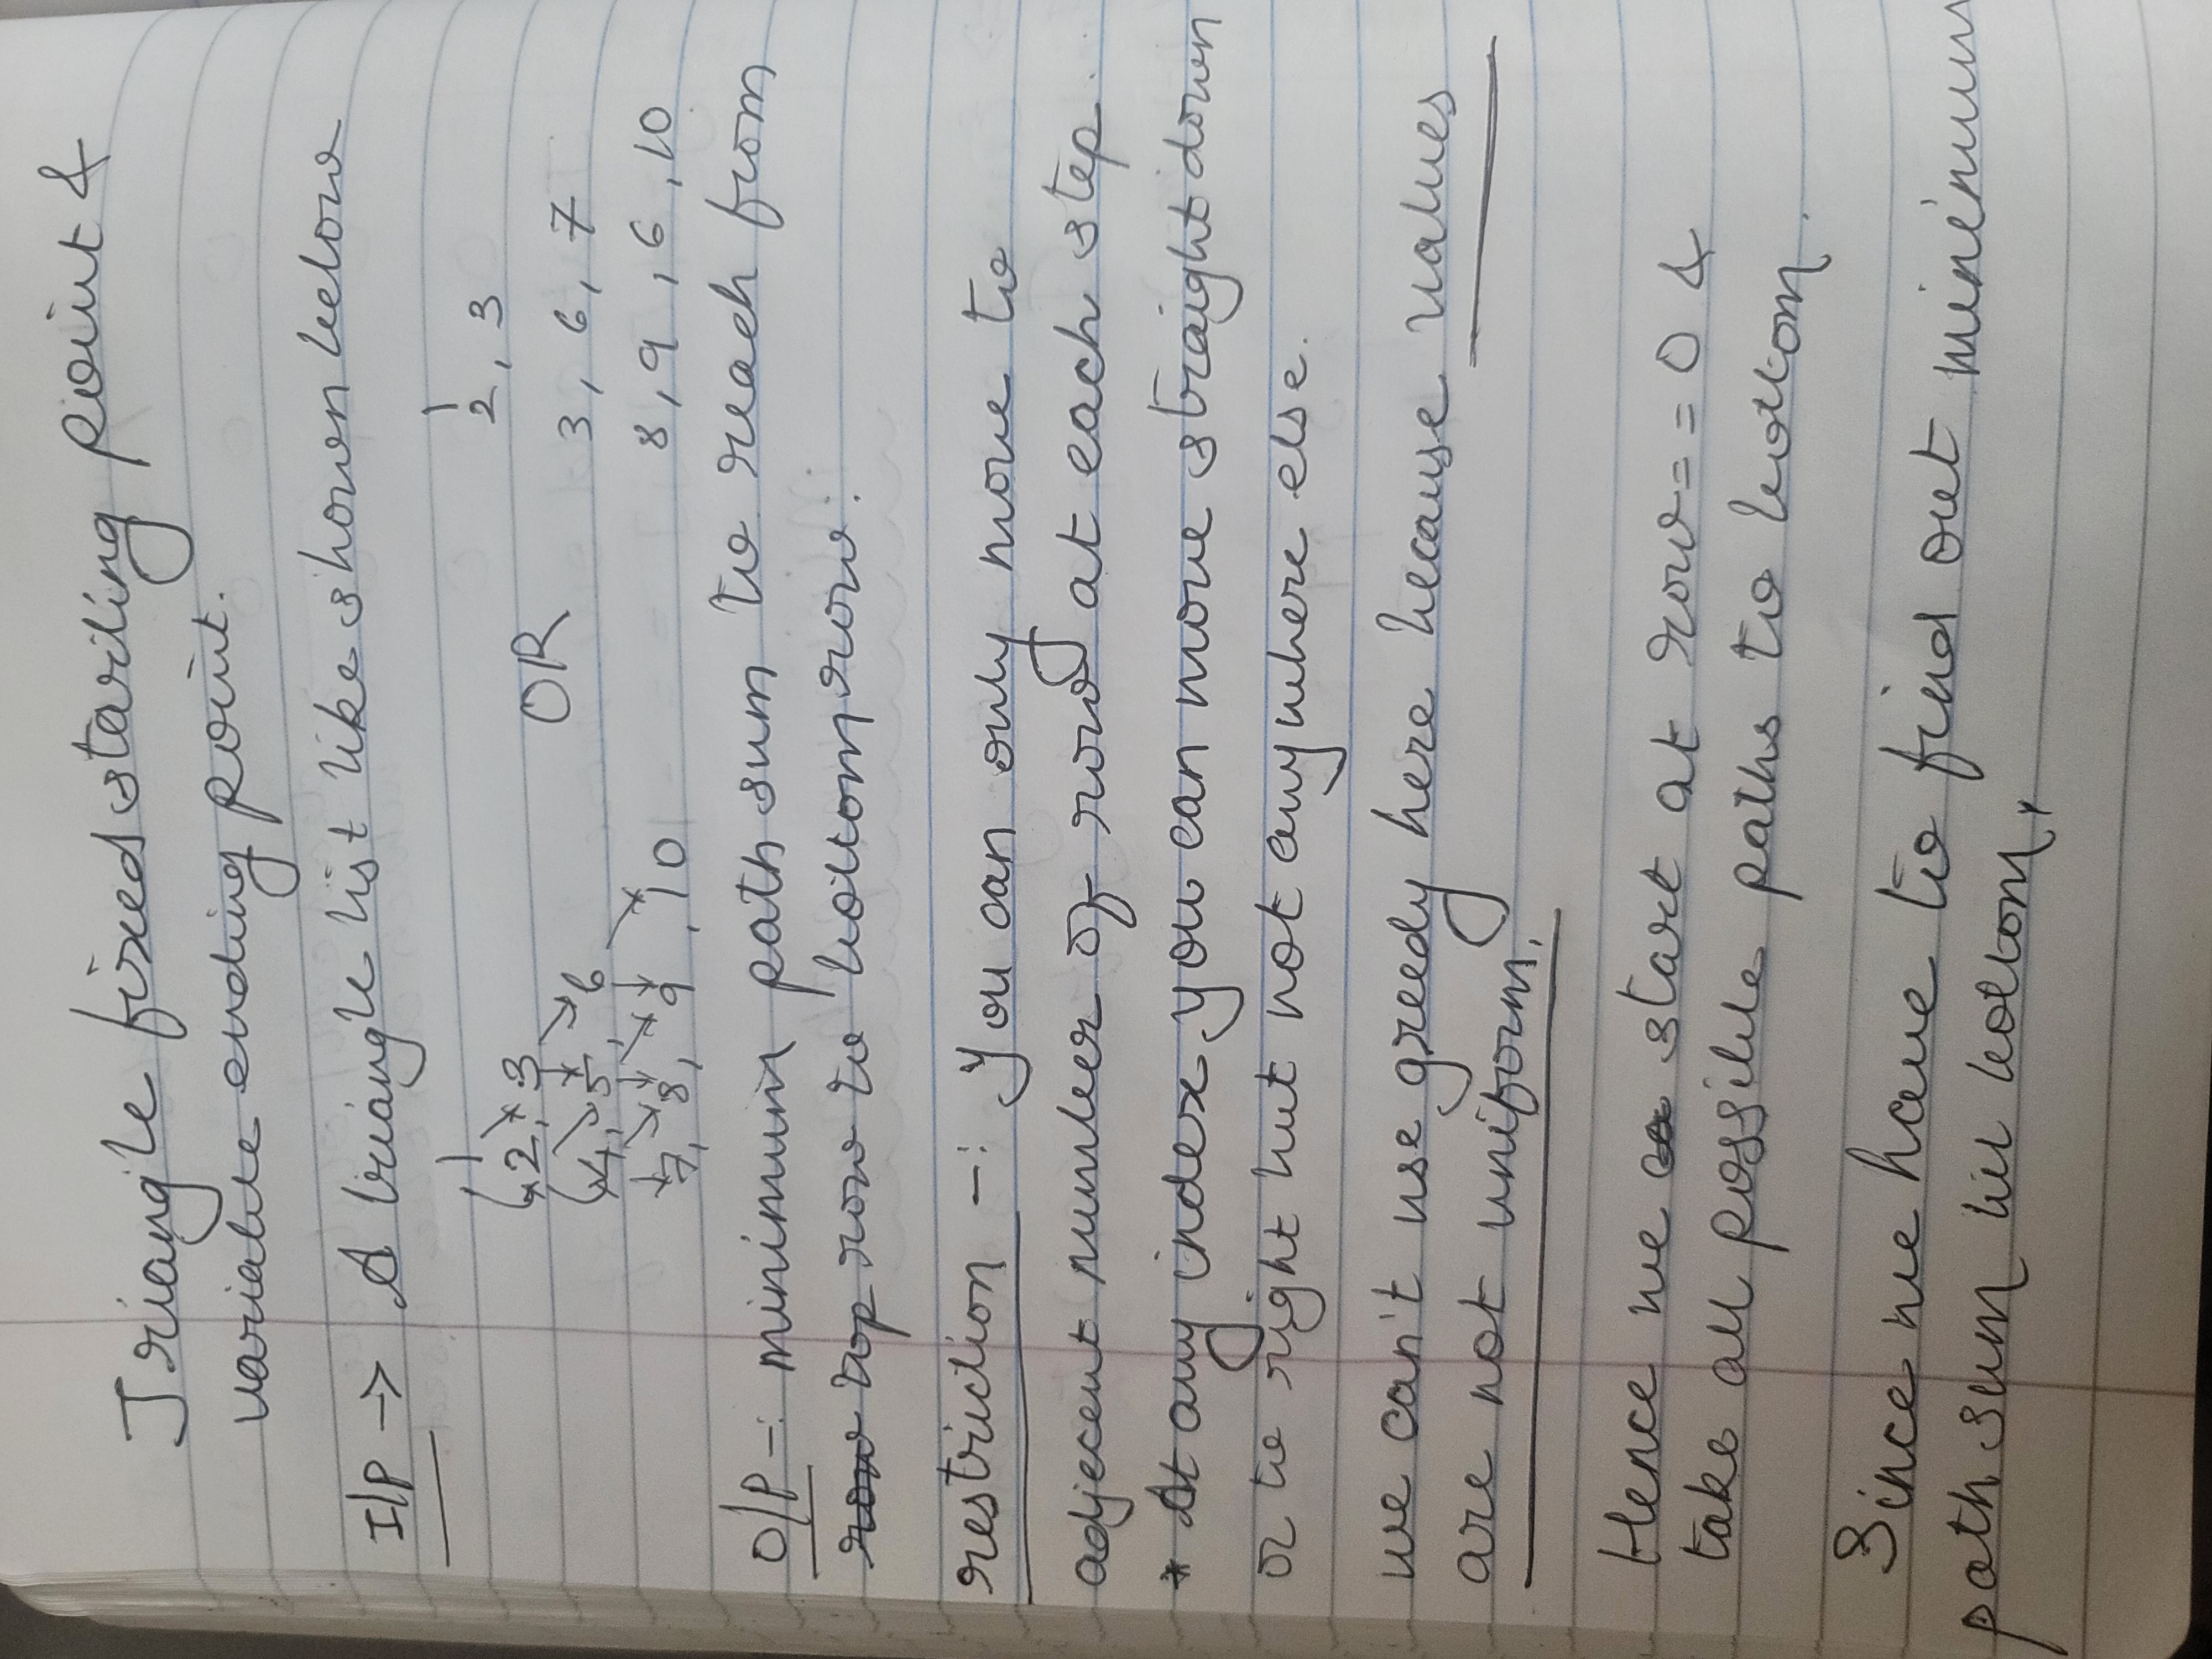 Triangle fixed starting point &
variable ending point.
I/P → A triangle list like shown below
1
2, 3
4, 5, 6
7, 8, 9, 10
OR
1
2, 3
3, 6, 7
8, 9, 6, 10
O/P -: minimum path sum to reach from
row top row to bottom row:
restriction -: You can only move to
adjecent number of row at each step.
* At any index you can move straight down
or to right but not anywhere else.
we can't use greedy here because values
are not uniform.
Hence we start at row==0 &
take all possible paths to bottom.
Since we have to find out minimum
path sum till bottom,